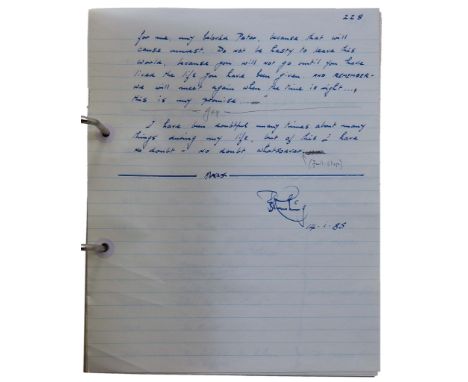 228
for me, my beloved Peter, because that will
cause unrest. Do not be hasty to leave this
World, because you will not go until you have
lived the life you have been given. AND REMEMBER-
we will meet again when the time is right...,
this is my promise
- gap -
I have been doubtful many times about many
things during my life, but of this I have
no doubt - no doubt whatsoever
(full stop)
14-1-85